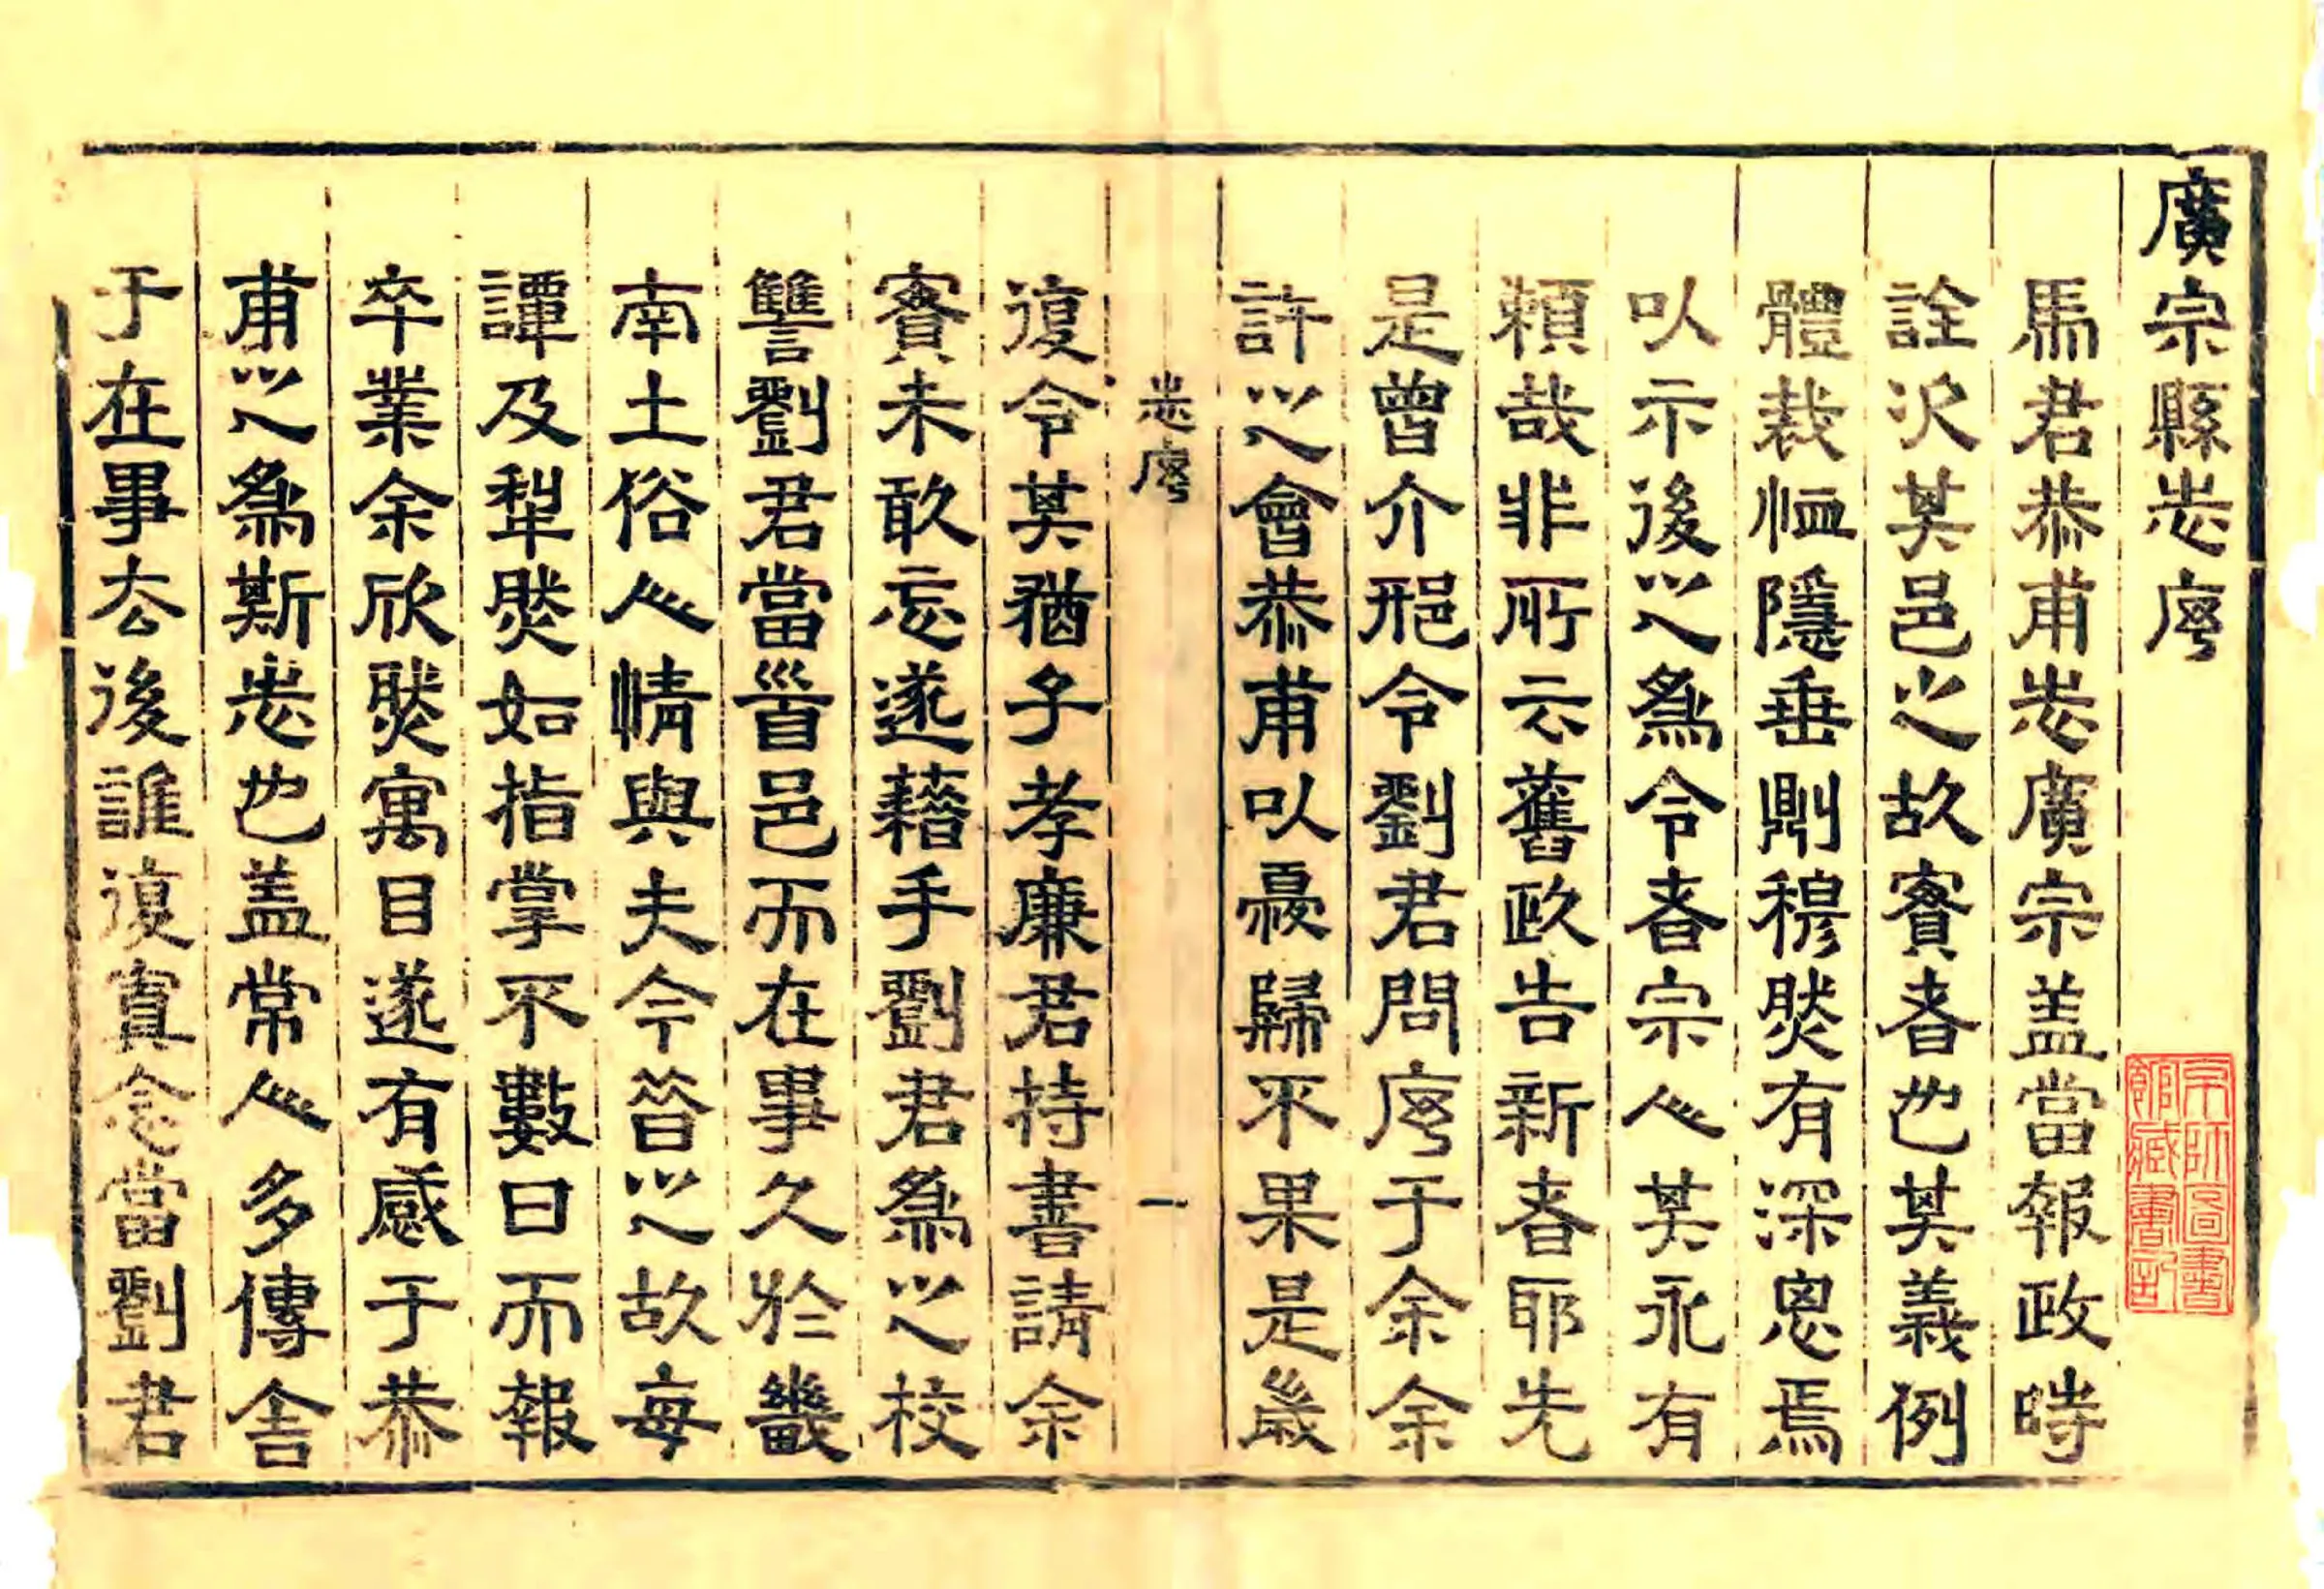 廣宗縣志序
馬君恭甫志廣宗盖當報政時
詮次其邑之故實者也其義例
體裁恤隱垂鼎穆然有深思焉
以示後之為令者宗人其永有
賴哉非所云舊政告新者耶先
是曾介邢令劉君問序于余余
許之會恭甫以憂歸不果是歲
志序
一
復令其猶子孝廉君持書請余
實未敢忘遂藉手劉君為之校
讐劉君當首邑而在事久於畿
南土俗人情與夫今昔之故每
譚及犁然如指掌不數日而報
卒業余欣然寓目遂有感于恭
甫之為斯志也盖常人多傳舍
于在事去後誰復寘念當劉君
京師圖書
館藏書記